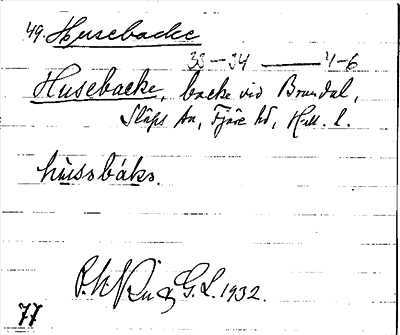 49. Husebacke
33–34 — 4–6
Husebacke, backe vid Brandal,
Släps sn, Fjäre hd, Hall. l.
hùssbáks.
G.L. 1932.
77